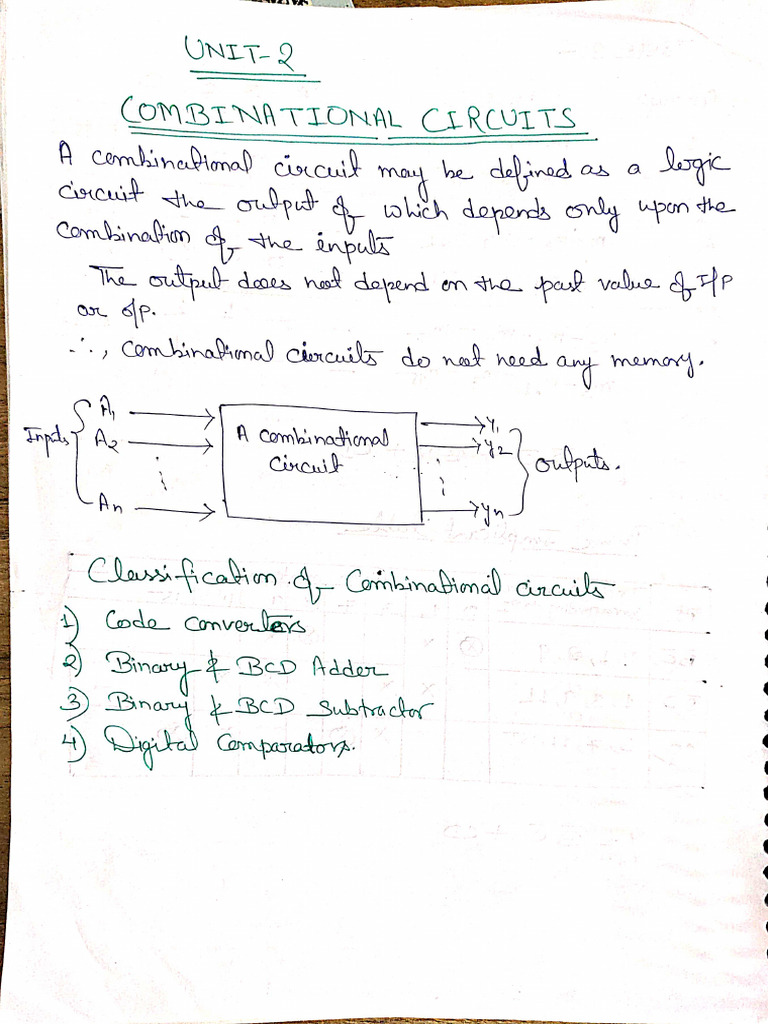 UNIT-2
COMBINATIONAL CIRCUITS
A combinational circuit may be defined as a logic
circuit the output of which depends only upon the
combination of the inputs
The output does not depend on the past value of I/P
or o/p.
∴, combinational circuits do not need any memory.
Inputs
A1
A2
An
A combinational
circuit
y1
y2
yn
outputs.
Classification of Combinational circuits
1) Code converters
2) Binary & BCD Adder
3) Binary & BCD Subtractor
4) Digital Comparators.